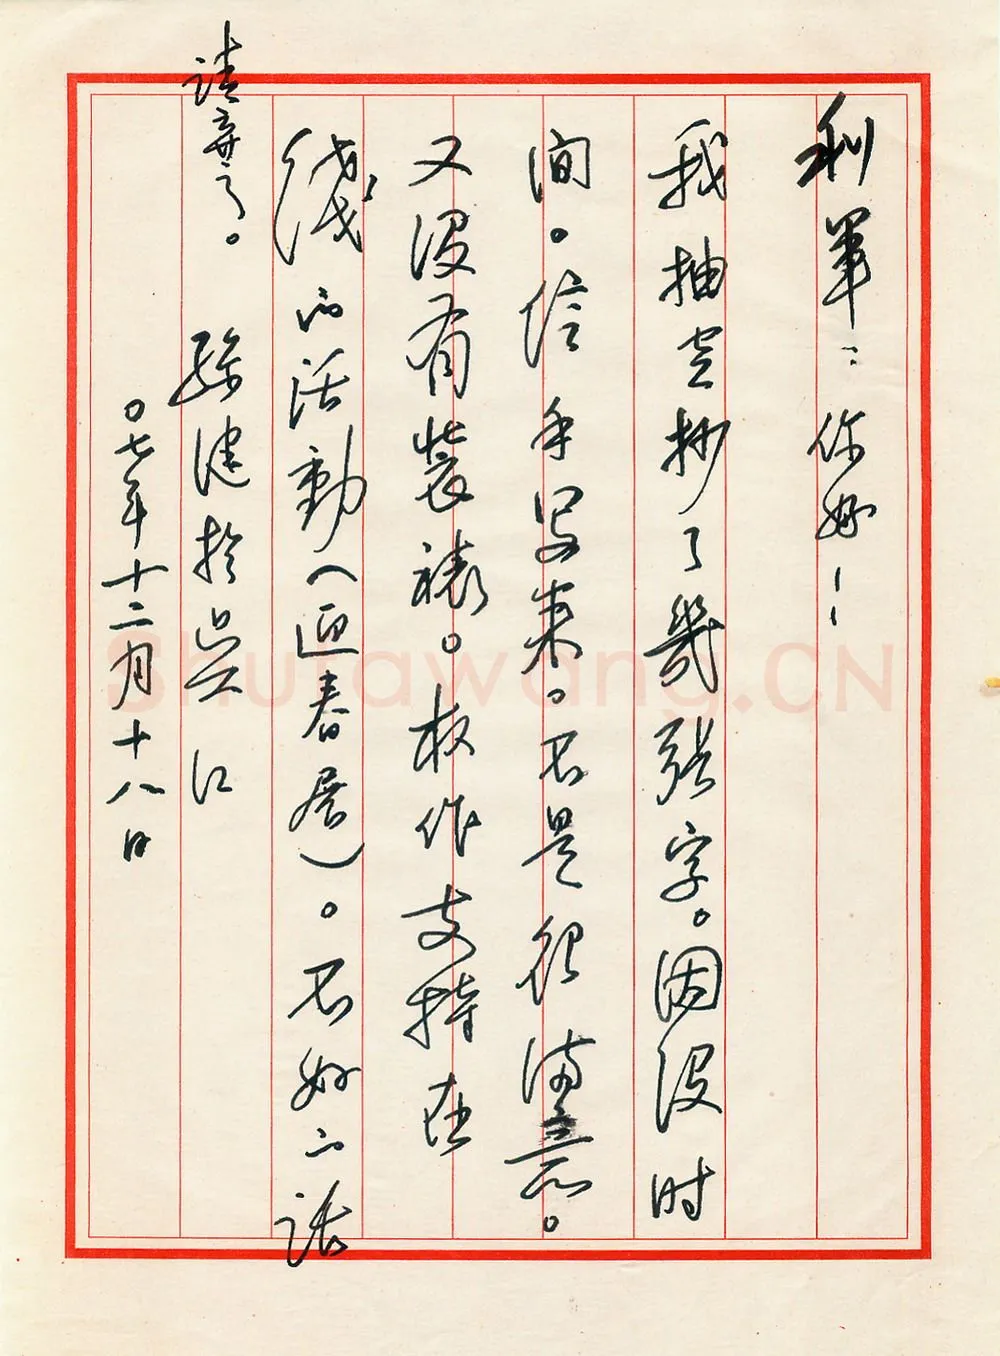 利軍：你好！
我抽空抄了幾張字。因没时
间。信手写来。不是很满意。
又没有装裱。权作支持在
綫的活動（迎春展）。不好的话
请弃了。 孫健於吴江
〇七年十二月十八日
Shufawang.CN